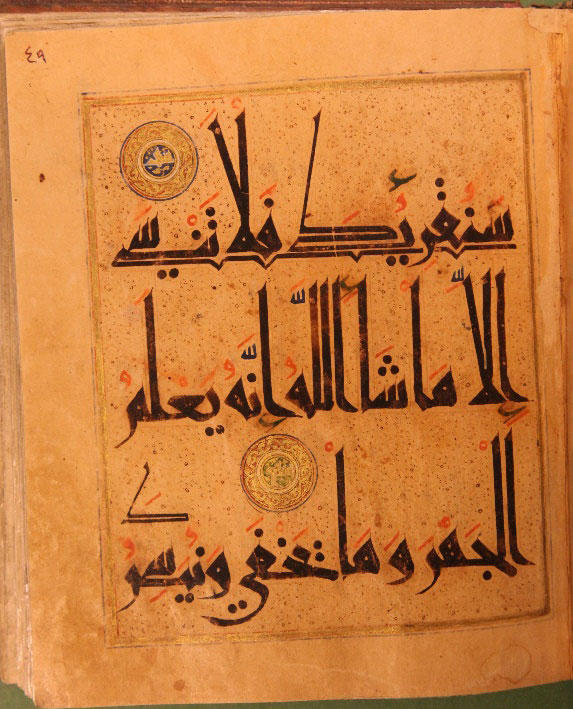 ٤٩
سَنُقْرِئُكَ فَلَا تَنْسَىٰ
إِلَّا مَا شَاءَ اللَّهُ إِنَّهُ يَعْلَمُ
الْجَهْرَ وَمَا يَخْفَىٰ وَنُيَسِّرُكَ